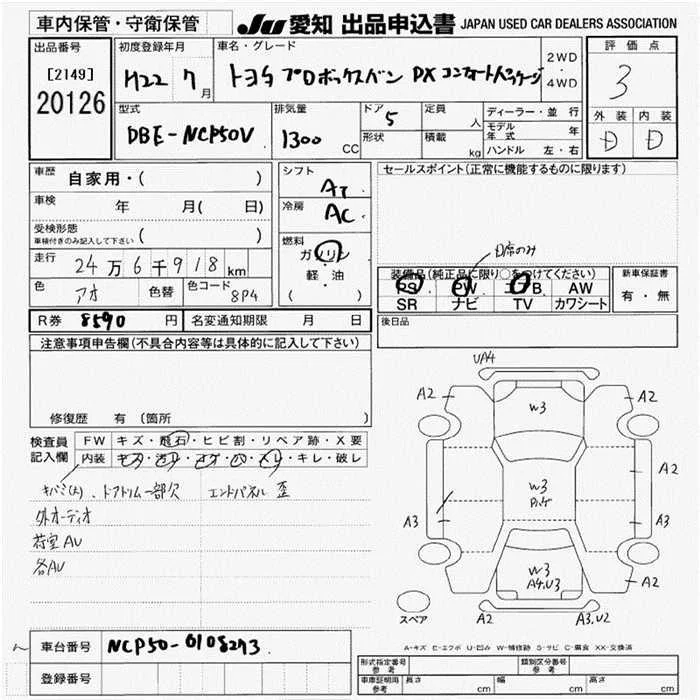 車内保管・守衛保管 JU 愛知 出品申込書 JAPAN USED CAR DEALERS ASSOCIATION
出品番号 初度登録年月 車名・グレード 評価点
[2149] H22 7月 トヨタ プロボックスバン DX コンフォートパッケージ 2WD・4WD 3
20126
型式 排気量 ドア 5 定員 人 ディーラー・並行 外装 内装
DBE-NCP50V 1300 CC 形状 積載 kg モデル年式 年 D D
ハンドル 左・右
車歴 自家用・( ) シフト AT セールスポイント(正常に機能するものに限ります)
車検 年 月( 日) 冷房 AC
受検形態 ( )
車検付きのみ記入して下さい
走行 24万6千918km 燃料 ガソリン・軽油 ( )
D席のみ
色 アオ 色替 色コード 8P4
装備品(純正品に限り○をつけてください) 新車保証書
PS PW エアB AW 有・無
SR ナビ TV カワシート
R券 8590円 名変通知期限 月 日 後日品
注意事項申告欄(不具合内容等は具体的に記入して下さい)
修復歴 有 (箇所
検査員記入欄 FW キズ・飛石・ヒビ割・リペア跡・X要
内装 キズ・汚レ・コゲ・穴・スレ・キレ・破レ
キバミ(大)、ドアトリム一部欠 エンドパネル歪
外オーディオ
荷室AU
各AU
UA4
A2 W3 A2
A2
W3
A3 A3
W3
A4.U3 A2
スペア A2 A3,U2
A-キズ E-エクボ U-凹み W-補修跡 S-サビ C-腐食 XX-交換済
車台番号 NCP50-0108273
登録番号
形式指定番号 参考 類別区分番号 参考
車庫証明用 参考 長さ cm 幅 cm 高さ cm